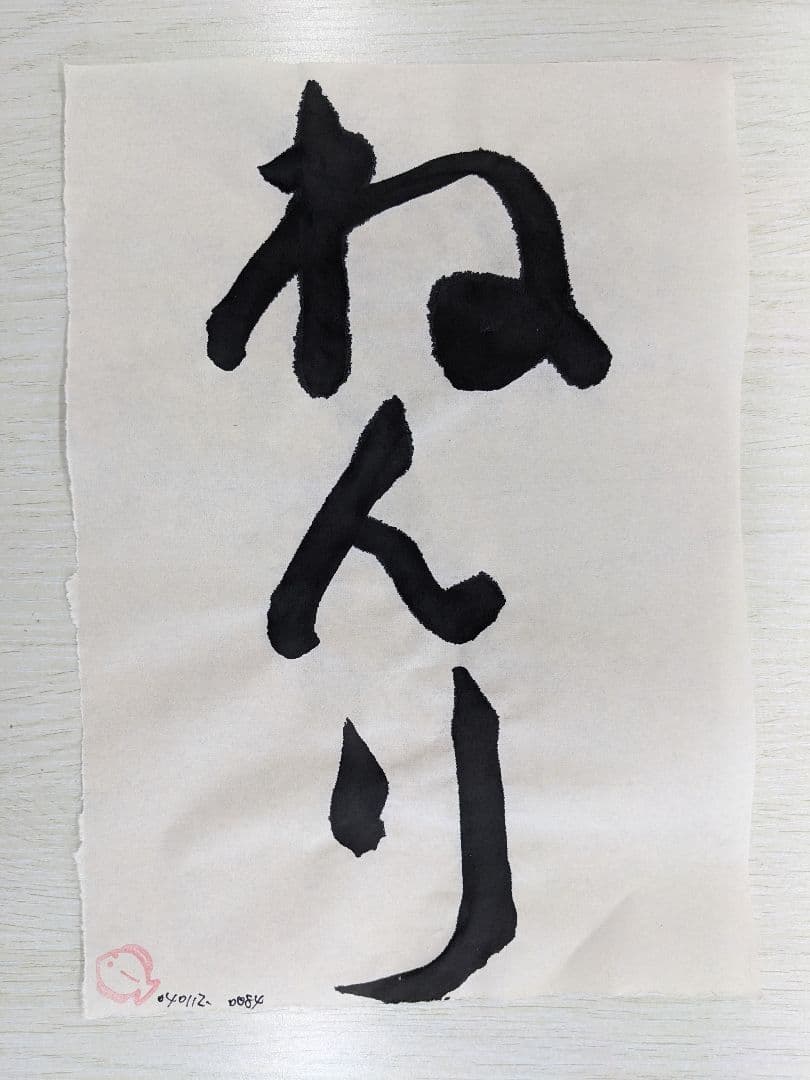 ねんり
040112 0084